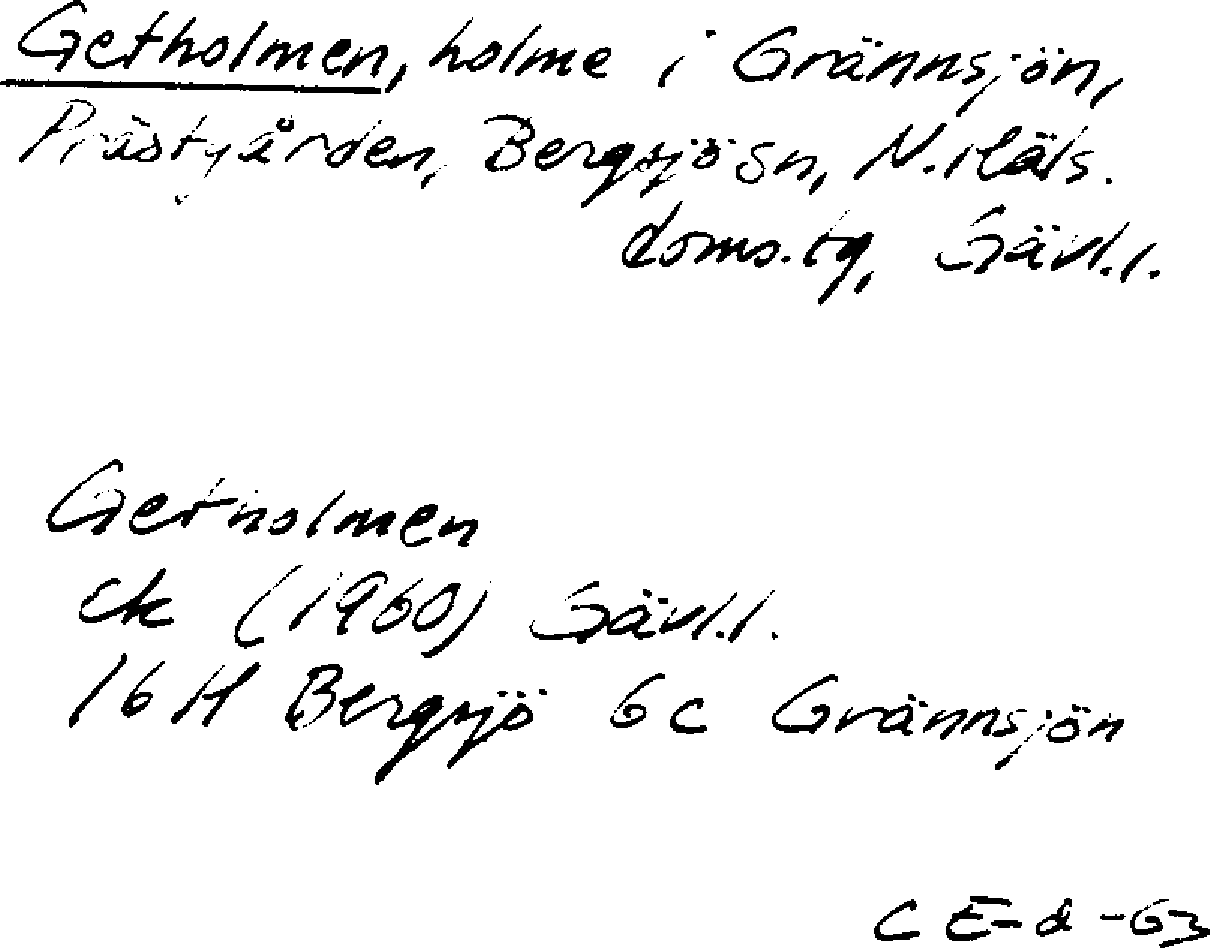 Getholmen, holme i Grännsjön,
Prästgården, Bergsjö sn, N. Häls.
doms.tg, Gävl.l.
Getholmen
ek (1960) Gävl.l.
16 H Bergsjö 6 c Grännsjön
C E-d -63